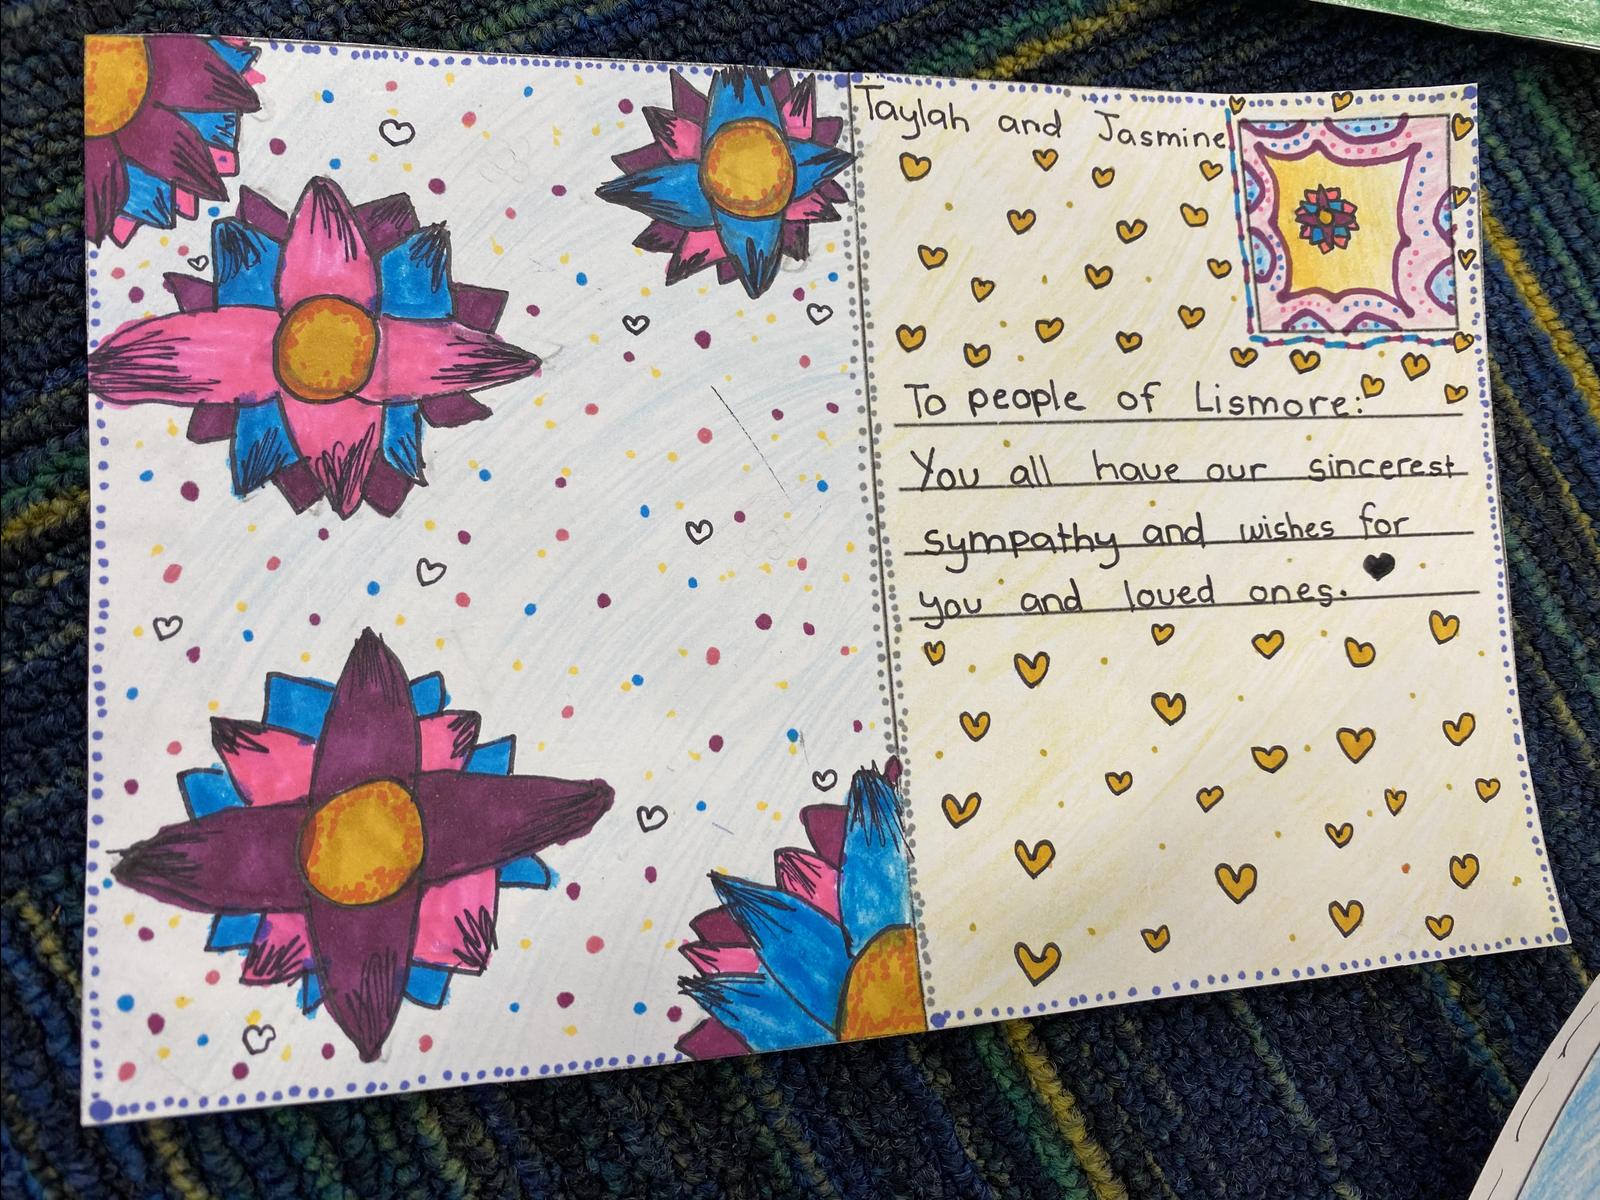 Taylah and Jasmine
To people of Lismore:
You all have our sincerest
sympathy and wishes for
you and loved ones.